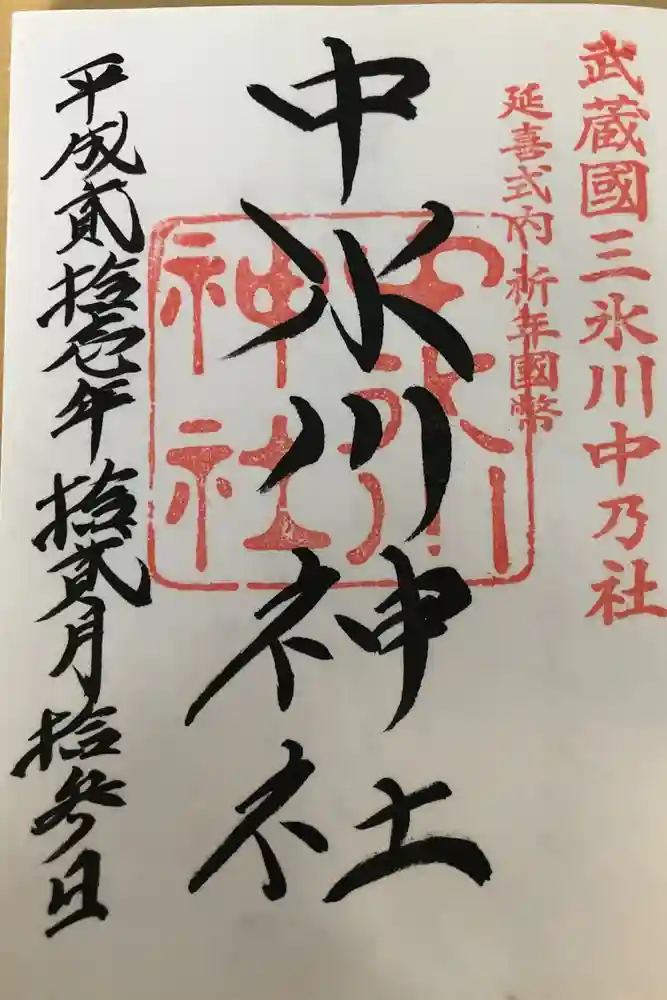 武蔵國三氷川中乃社
延喜式内祈年國幣
中氷川神社
中氷川
神社
平成貳拾壱年拾貳月拾参日